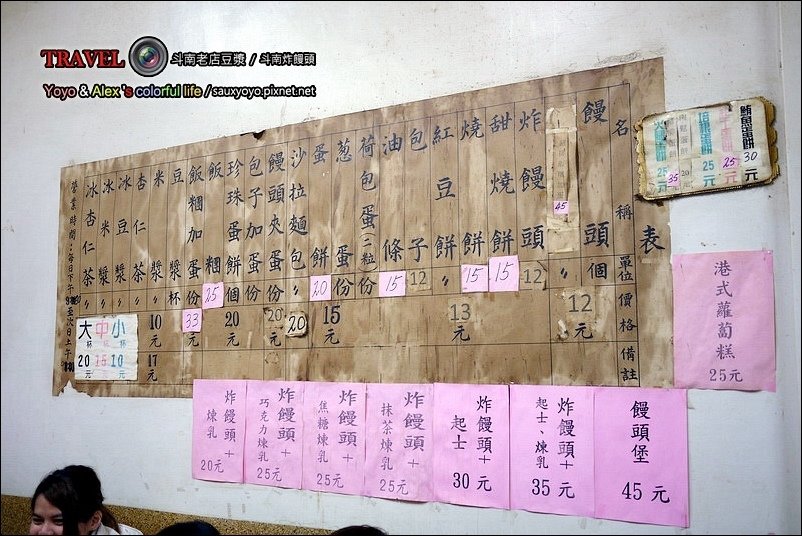 TRAVEL 斗南老店豆漿 / 斗南炸饅頭
Yoyo & Alex 's colorful life / sauxyoyo.pixnet.net
表
名稱 單位 價格 備註
饅頭 個 12元
〃
45
炸饅頭 〃 12
甜燒餅 15
燒餅 15
紅豆餅 〃 13元
包子 12
油條 15
荷包蛋(二粒) 份
蔥蛋 份 15元
蛋餅 20
沙拉麵包 〃 20
饅頭夾蛋 份 20元
包子加蛋 份
珍珠蛋餅 個 20元
飯糰 25
飯糰加蛋 份 33元
豆漿 杯
米漿 〃 10元 17元
杏仁茶 〃
冰豆漿 〃
冰米漿 〃
冰杏仁茶 〃
小杯 10元
中杯 15元
大杯 20元
營業時間:每日下午
至次日上午
鮪魚蛋餅 30
25元
25元
35
20元
港式蘿蔔糕
25元
饅頭堡
45元
炸饅頭+
起士、煉乳
35元
炸饅頭+
起士
30元
炸饅頭+
抹茶煉乳
25元
炸饅頭+
焦糖煉乳
25元
炸饅頭+
巧克力煉乳
25元
炸饅頭+
煉乳
20元